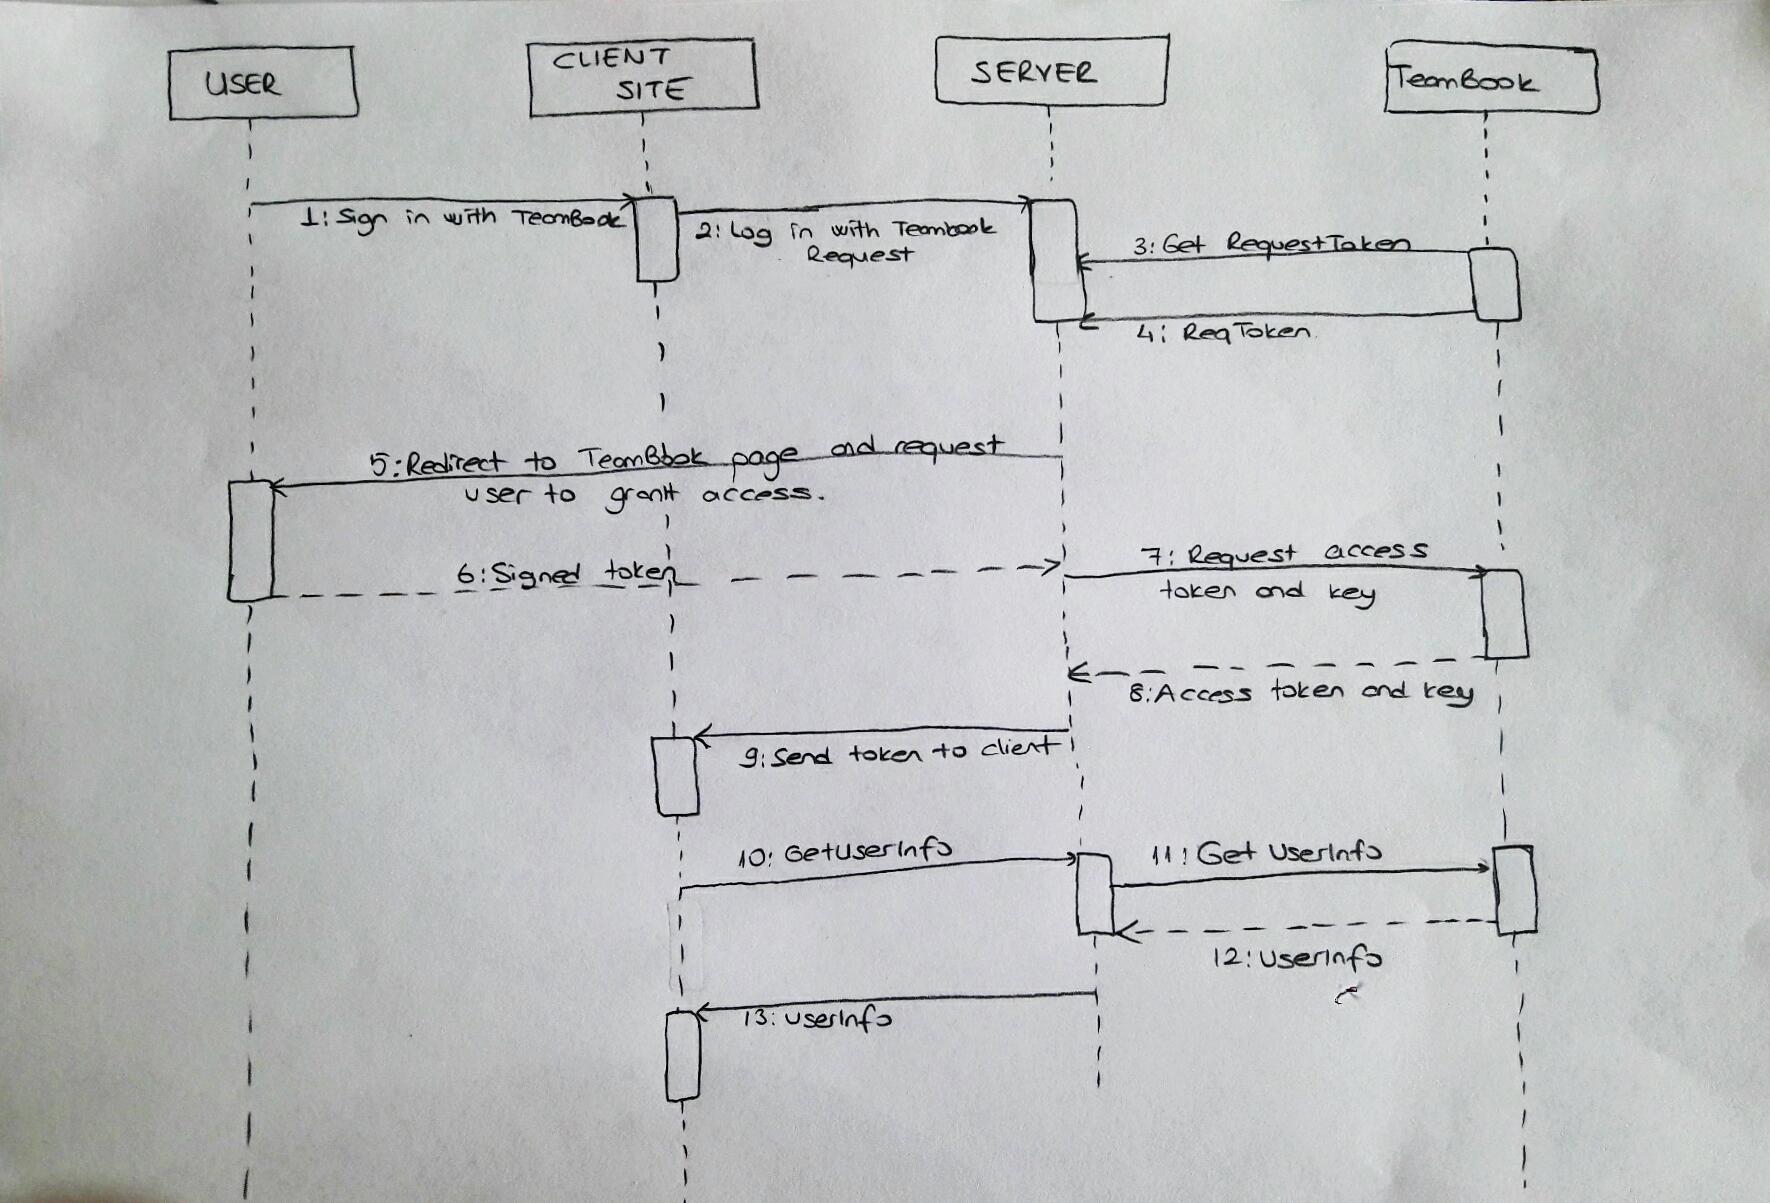 USER
CLIENT
SITE
SERVER
TeamBook
1: Sign in with TeamBook
2: Log in with Teambook
Request
3: Get RequestToken
4: ReqToken
5: Redirect to TeamBook page and request
user to grant access.
6: Signed token
7: Request access
token and key
8: Access token and key
9: Send token to client
10: GetUserInfo
11: Get UserInfo
12: UserInfo
13: UserInfo